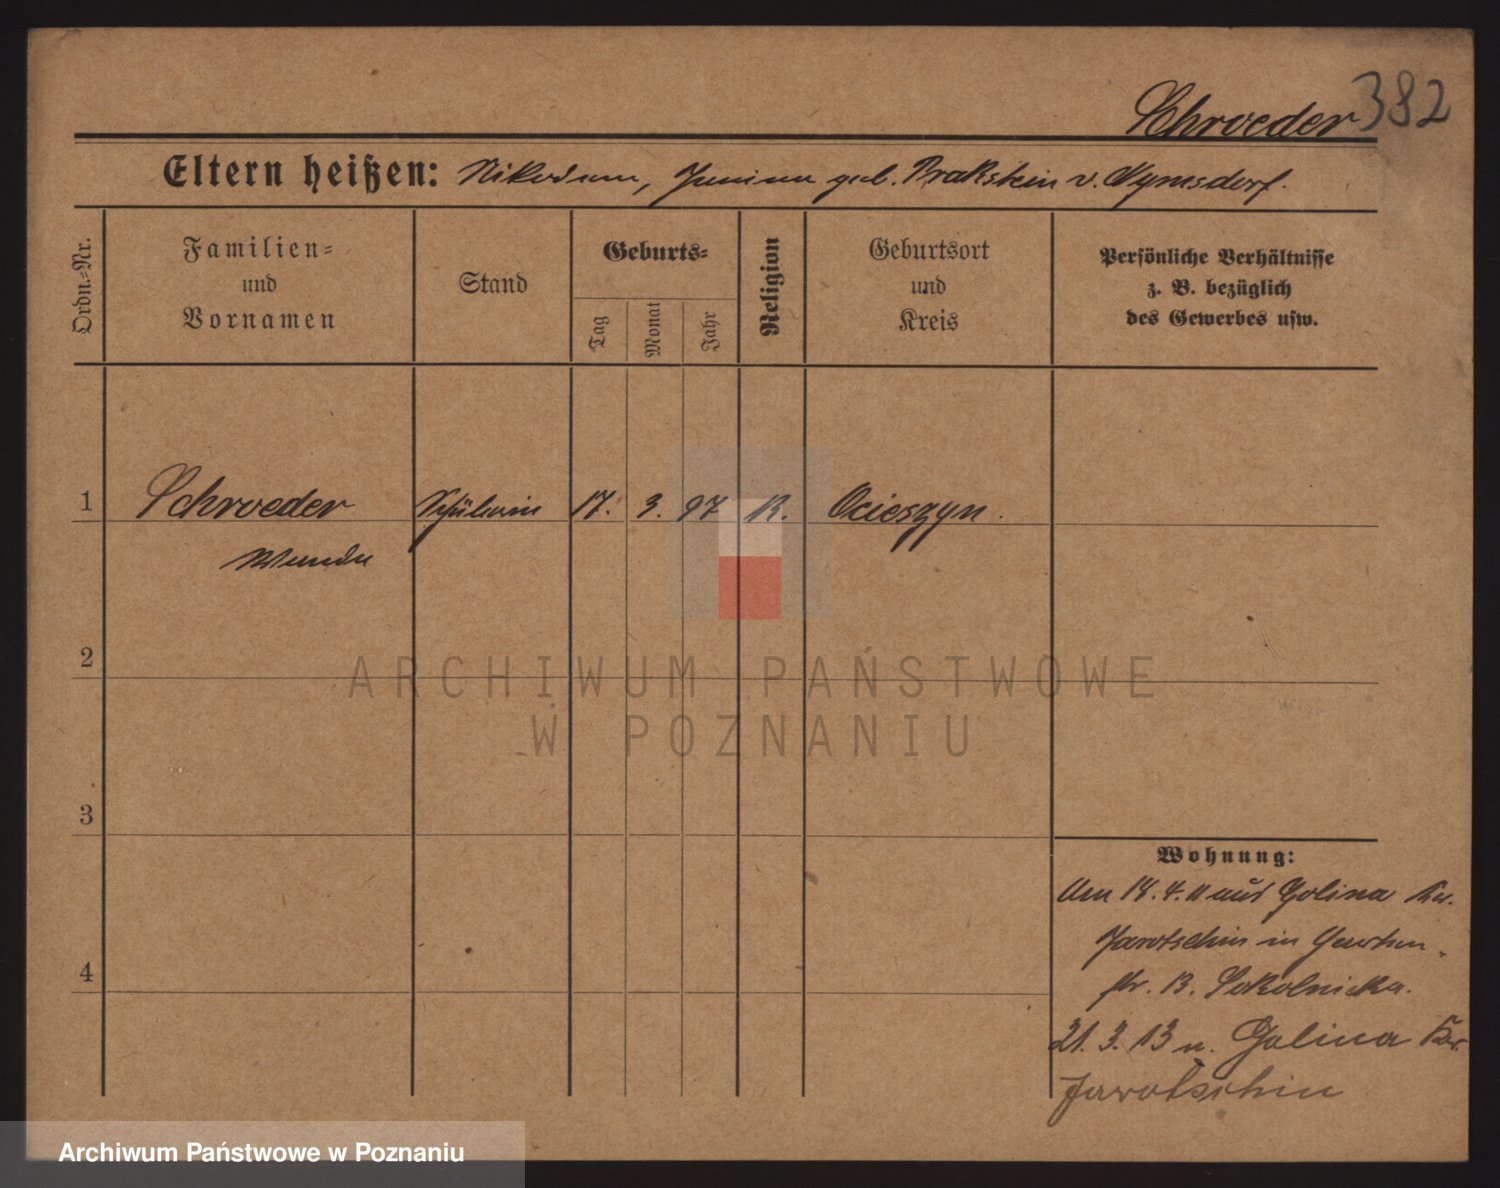 Schroeder 382
Eltern heißen: Nikodem, Janina geb. v.
Ordn.-Nr.
Familien-
und
Vornamen
Stand
Geburts-
Tag
Monat
Jahr
Religion
Geburtsort
und
Kreis
Persönliche Verhältnisse
z. B. bezüglich
des Gewerbes usw.
1 Schroeder Schülerin 17. 3. 97 K. Ocieszyn.
Wanda
2
ARCHIWUM PAŃSTWOWE
W POZNANIU
3
Wohnung:
Am 18.4.11 aus Golina Kr.
Jarotschin in Garten-
4
str. 13. Sokolnicka.
21.3.13 n. Golina Kr.
Jarotschin
Archiwum Państwowe w Poznaniu